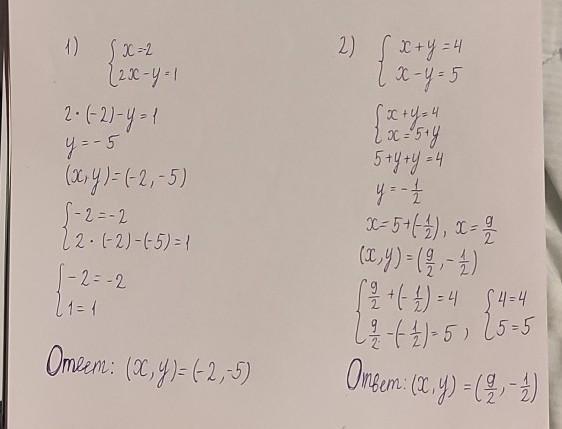 1) { x=-2
2x-y=1
2·(-2)-y=1
y=-5
(x,y)=(-2,-5)
{ -2=-2
2·(-2)-(-5)=1
{ -2=-2
1=1
Ответ: (x,y)=(-2,-5)
2) { x+y=4
x-y=5
{ x+y=4
x=5+y
5+y+y=4
y=-1/2
x=5+(-1/2), x=9/2
(x,y)=(9/2,-1/2)
{ 9/2+(-1/2)=4
9/2-(-1/2)=5, { 4=4
5=5
Ответ: (x,y)=(9/2,-1/2)